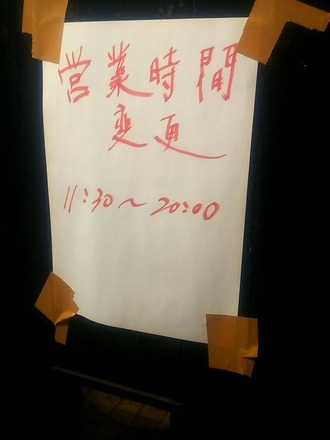 営業時間
変更
11:30〜20:00